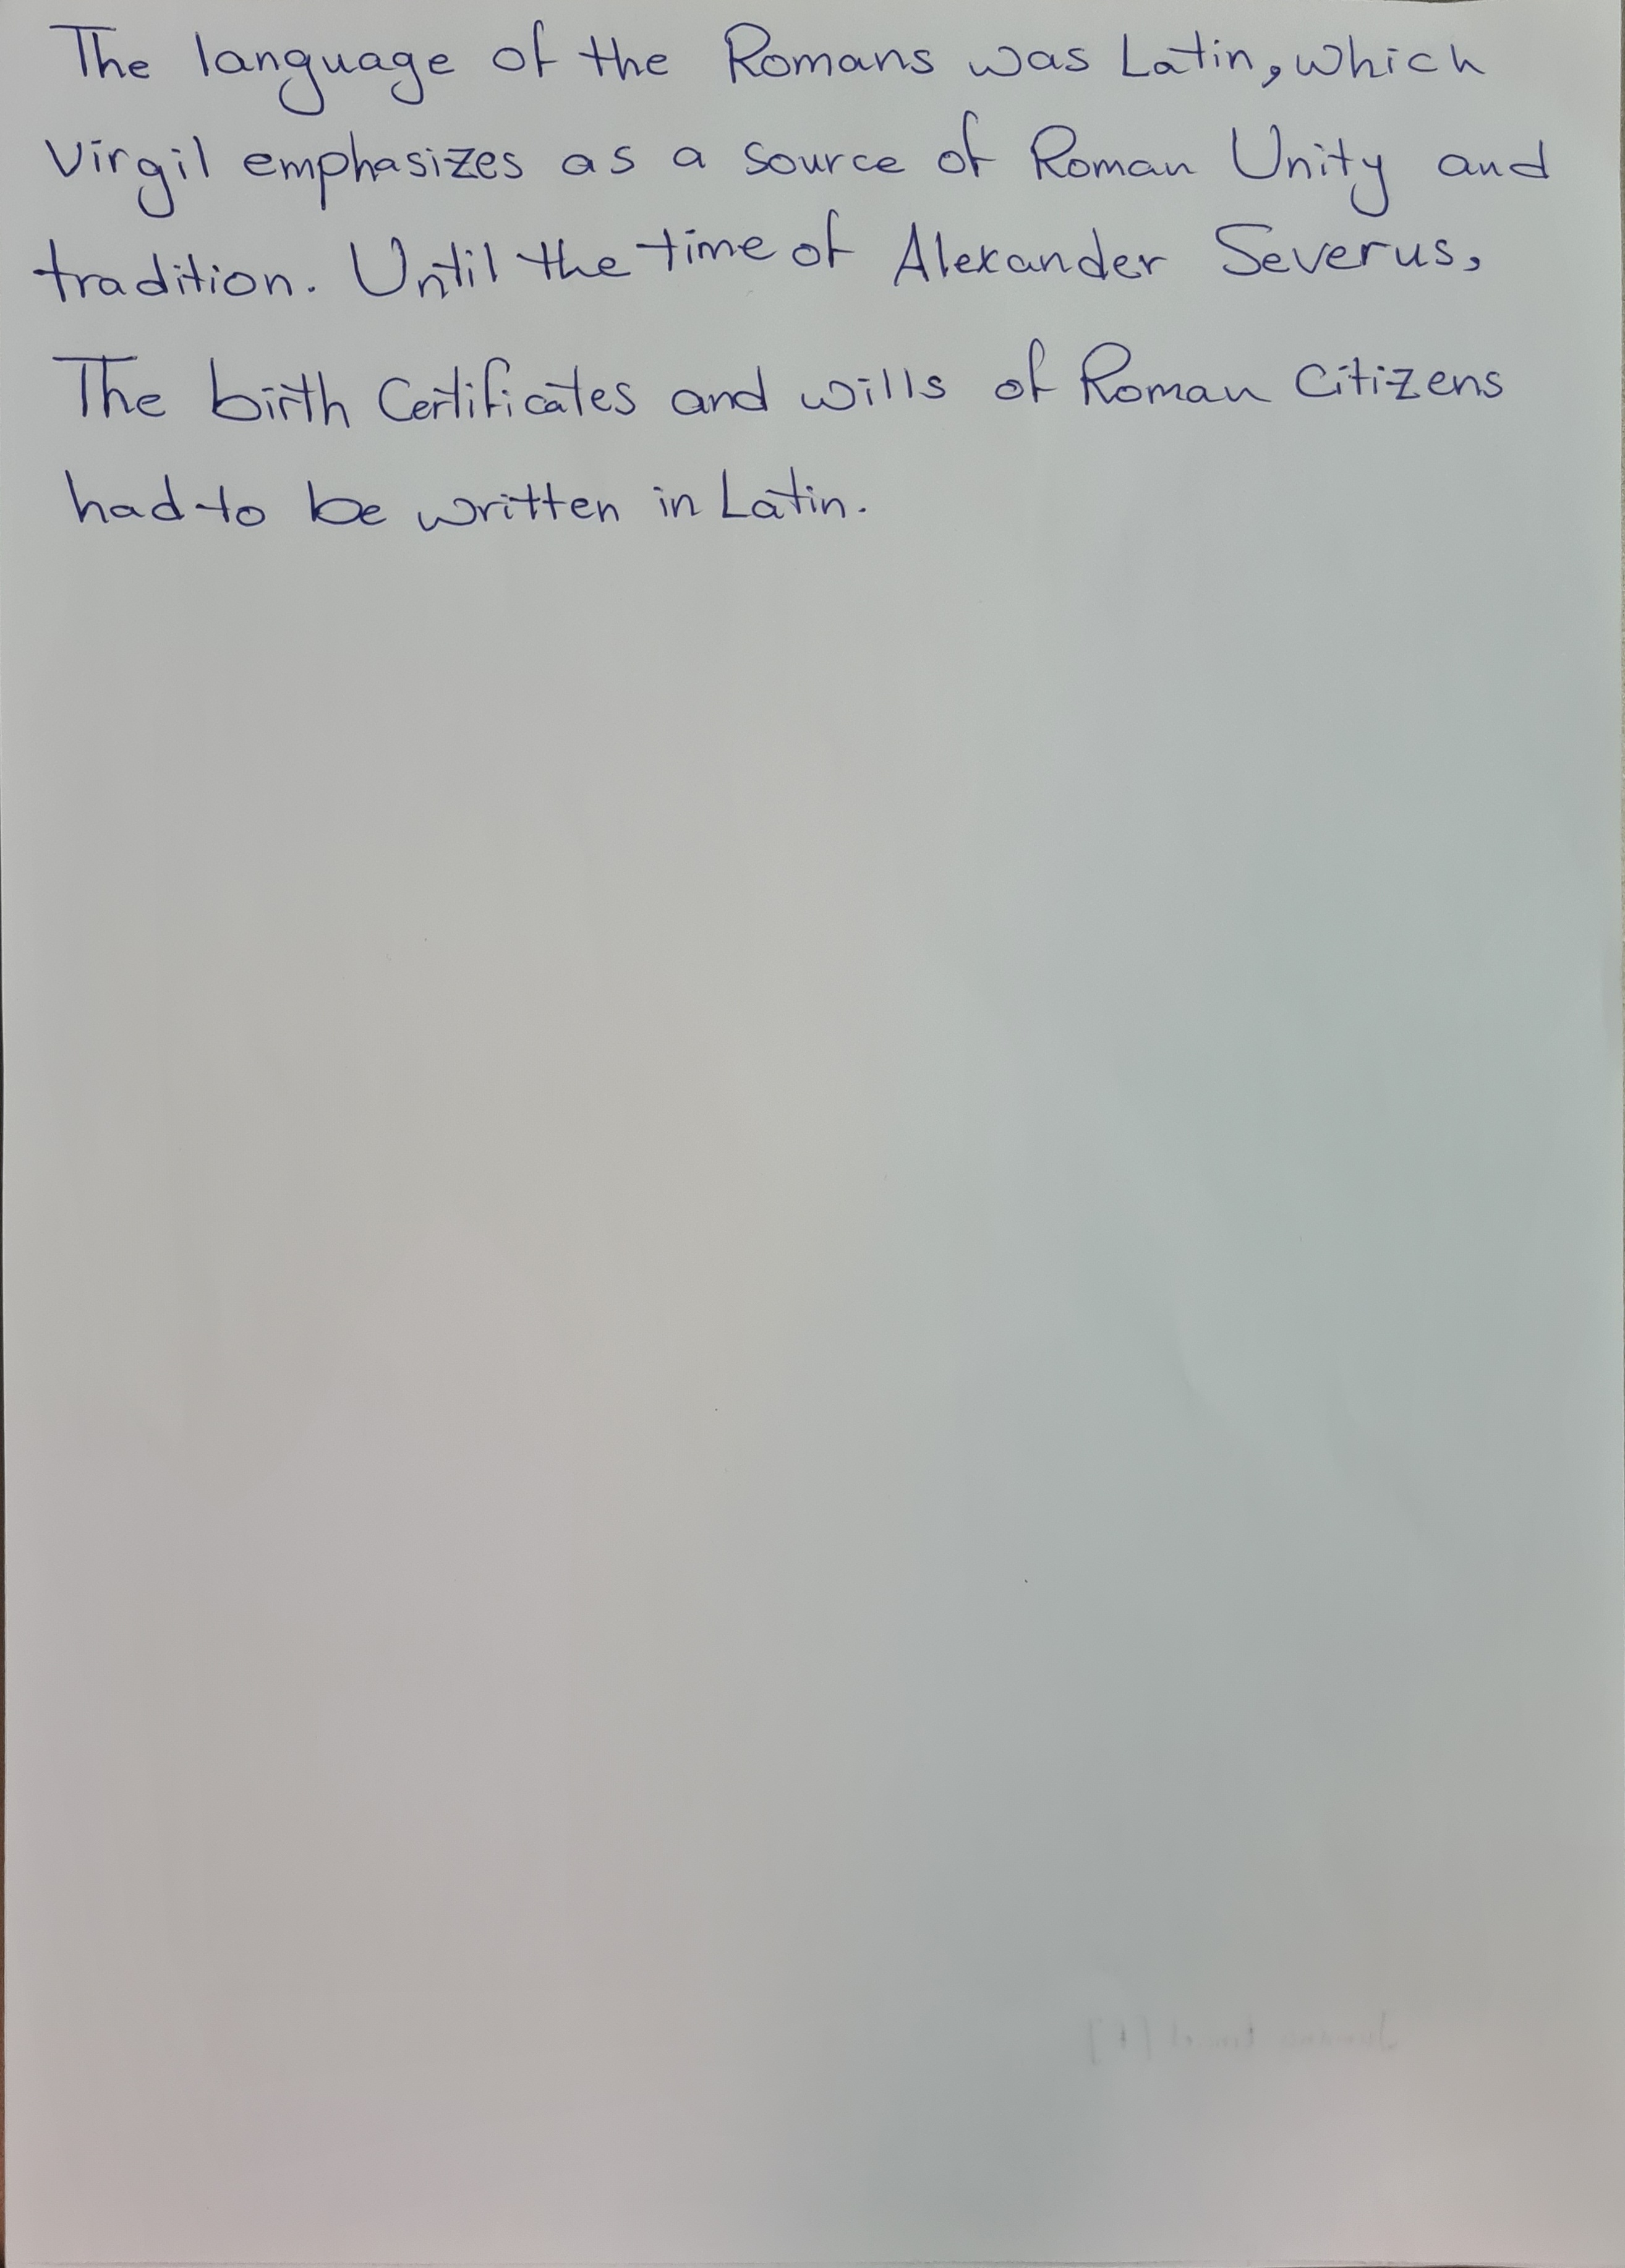 The language of the Romans was Latin, which
Virgil emphasizes as a source of Roman Unity and
tradition. Until the time of Alexander Severus,
The birth Certificates and wills of Roman Citizens
had to be written in Latin.